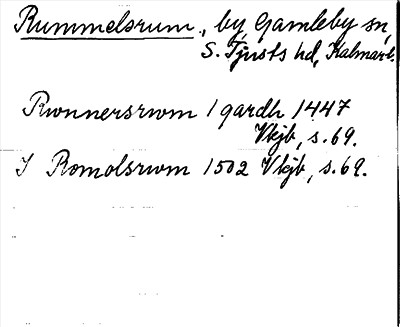 Rummelsrum, by, Gamleby sn,
S. Tjusts hd, Kalmar l.
Rwnnersrwm 1 gardh 1447
Vkjb, s. 69.
I Romolsrwm 1502 Vkjb, s. 69.